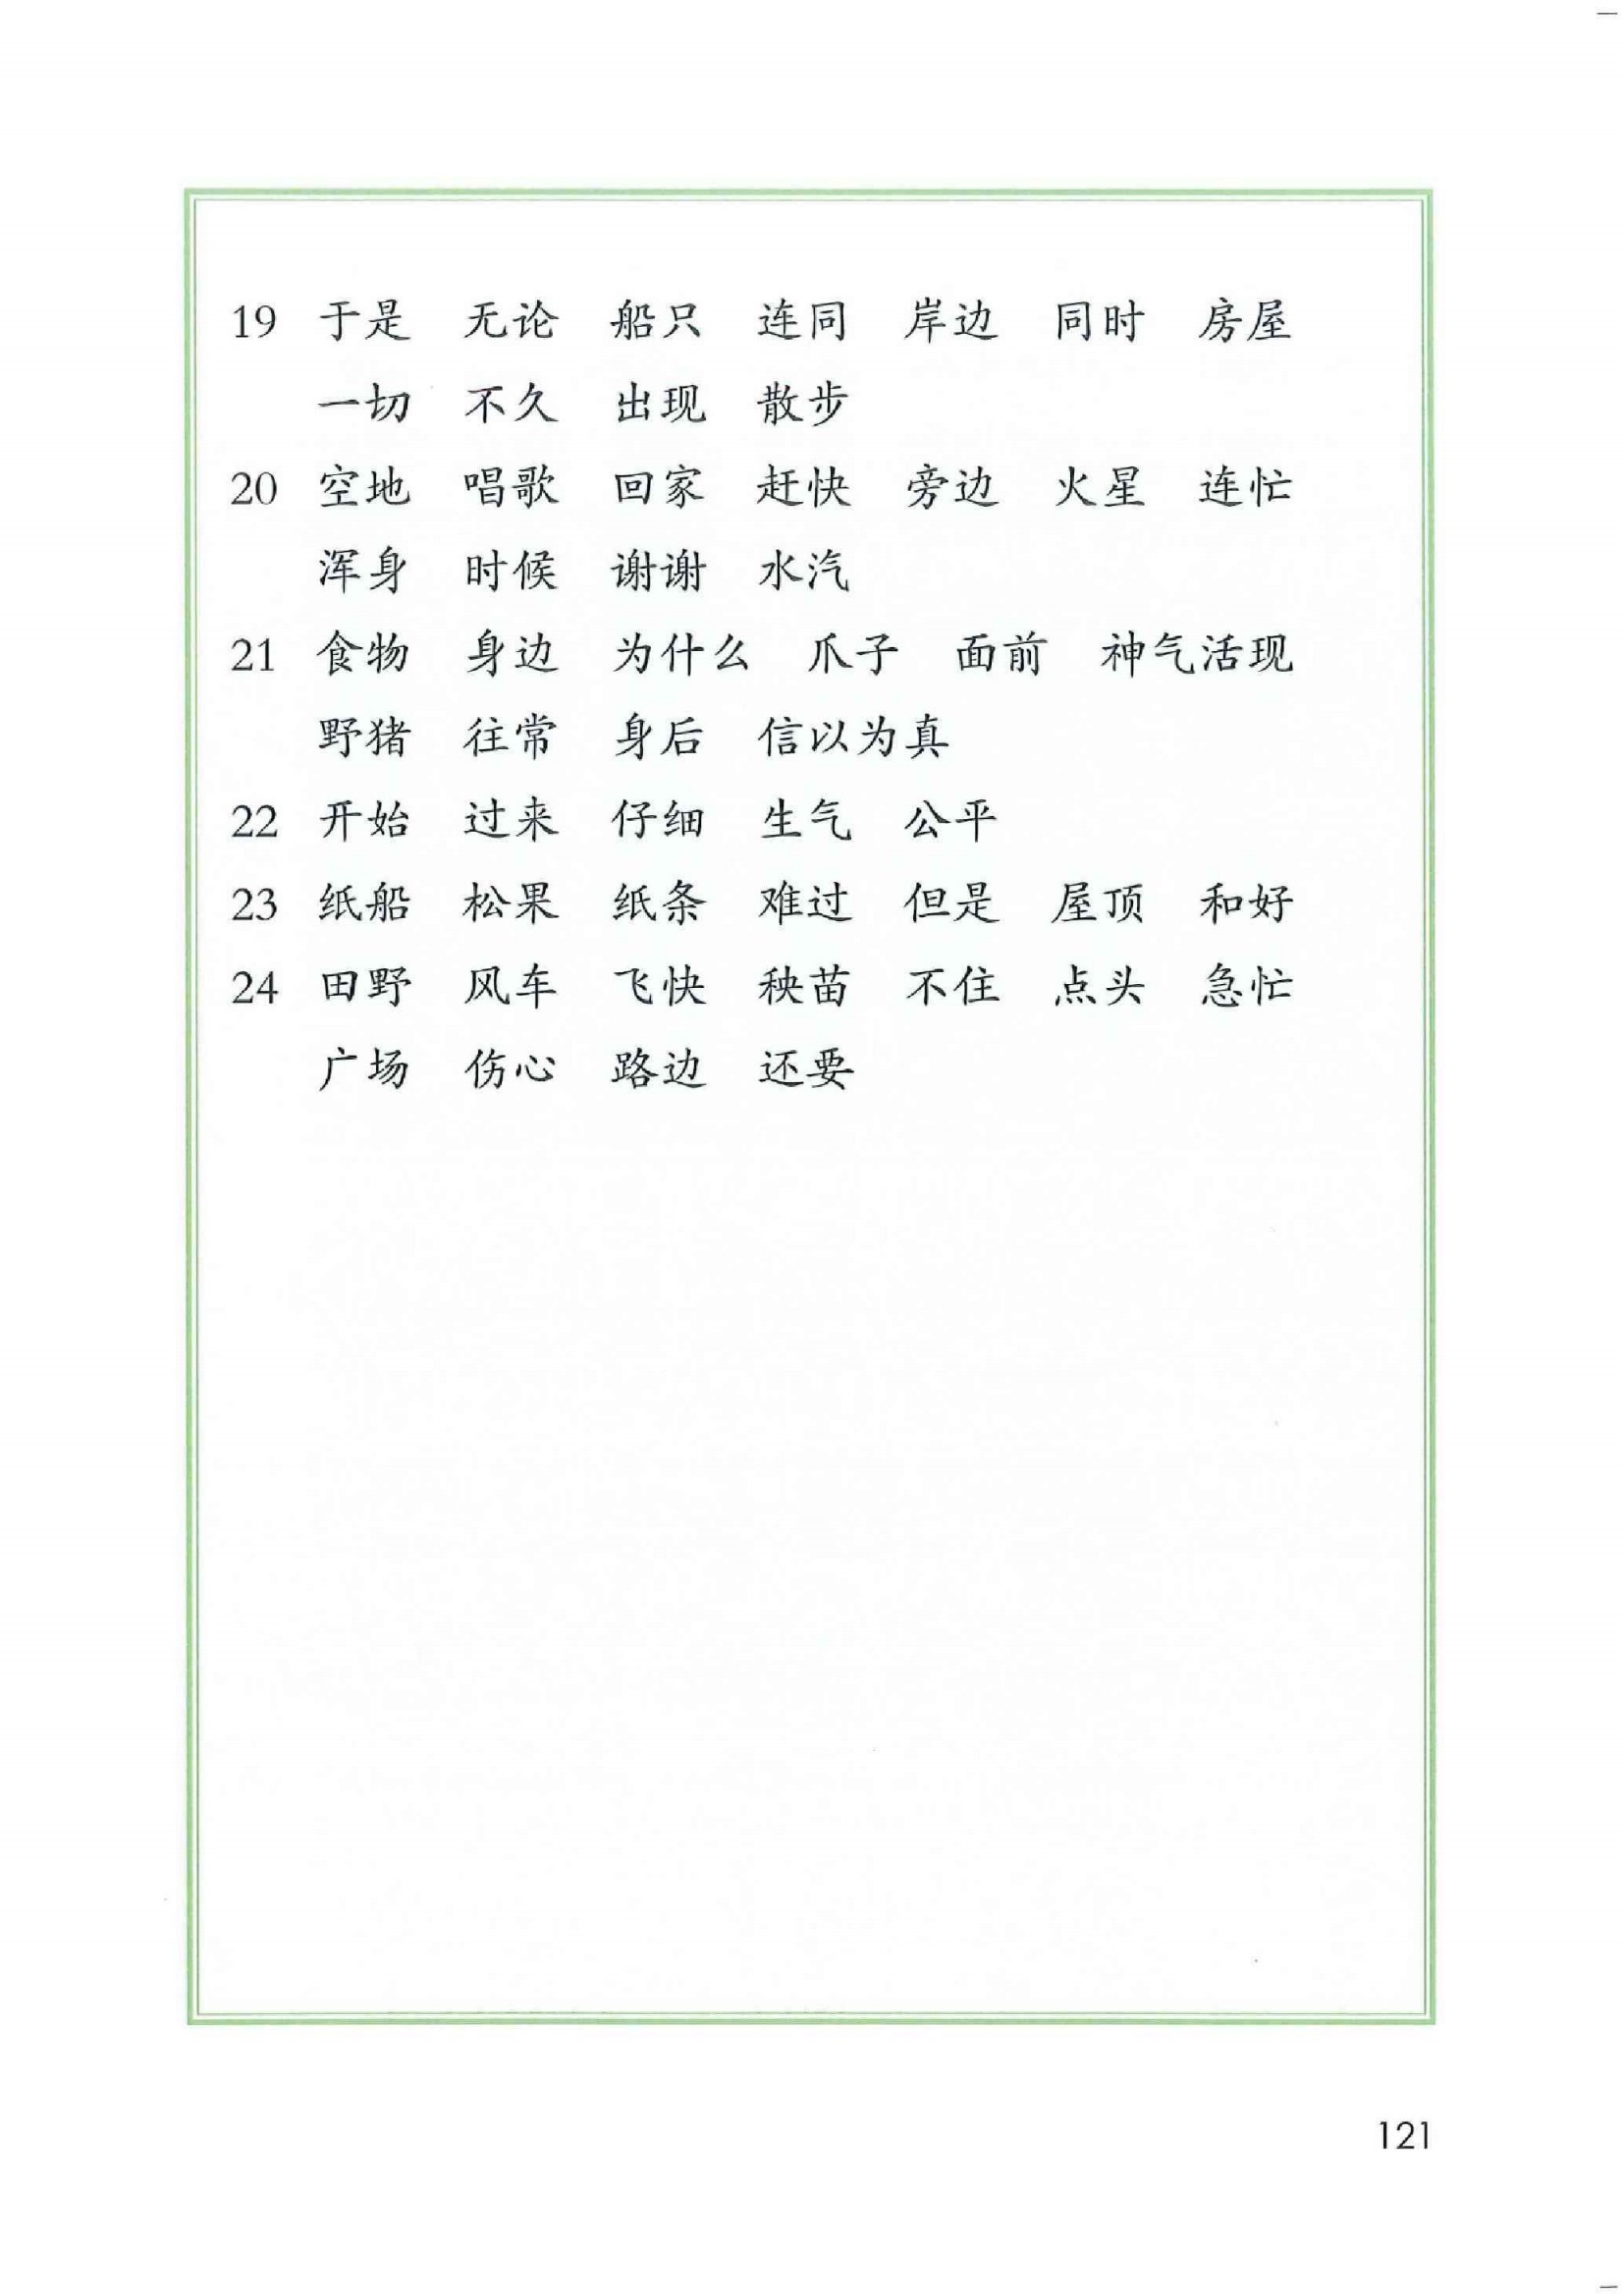 19 于是 无论 船只 连同 岸边 同时 房屋
一切 不久 出现 散步
20 空地 唱歌 回家 赶快 旁边 火星 连忙
浑身 时候 谢谢 水汽
21 食物 身边 为什么 爪子 面前 神气活现
野猪 往常 身后 信以为真
22 开始 过来 仔细 生气 公平
23 纸船 松果 纸条 难过 但是 屋顶 和好
24 田野 风车 飞快 秧苗 不住 点头 急忙
广场 伤心 路边 还要
121